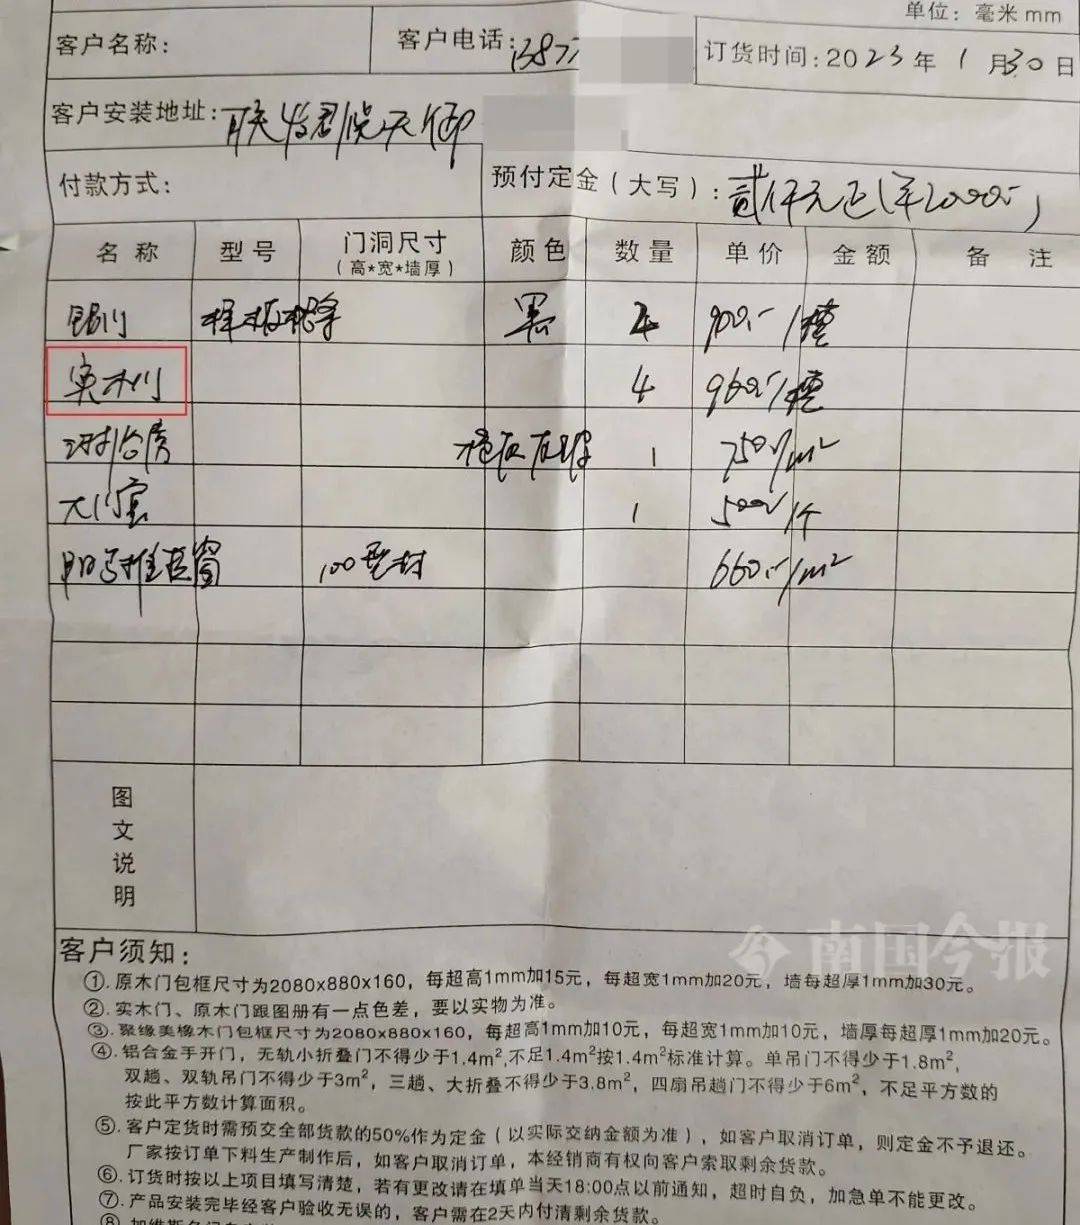 单位：毫米 mm
客户名称：
客户电话：1387
订货时间：2023年1月30日
客户安装地址：联发君悦天御
付款方式：
预付定金（大写）：贰仟元正（¥2000.-）
名称 型号 门洞尺寸 颜色 数量 单价 金额 备注
（高*宽*墙厚）
铝门 黑 900.-/樘
实木门 4 960.-/樘
淋浴房 1 750/m²
大门宝 1 500/个
阳台推拉窗 100型材 660.-/m²
图文说明
南国今报
客户须知：
①.原木门包框尺寸为2080x880x160，每超高1mm加15元，每超宽1mm加20元，墙每超厚1mm加30元。
②.实木门、原木门跟图册有一点色差，要以实物为准。
③.聚缘美橡木门包框尺寸为2080x880x160，每超高1mm加10元，每超宽1mm加10元，墙厚每超厚1mm加20元。
④.铝合金手开门，无轨小折叠门不得少于1.4m²,不足1.4m²按1.4m²标准计算。单吊门不得少于1.8m²,
双趟、双轨吊门不得少于3m²，三趟、大折叠不得少于3.8m²，四扇吊趟门不得少于6m²，不足平方数的
按此平方数计算面积。
⑤.客户定货时需预交全部货款的50%作为定金（以实际交纳金额为准），如客户取消订单，则定金不予退还。
厂家按订单下料生产制作后，如客户取消订单，本经销商有权向客户索取剩余货款。
⑥.订货时按以上项目填写清楚，若有更改请在填单当天18:00点以前通知，超时自负，加急单不能更改。
⑦.产品安装完毕经客户验收无误的，客户需在2天内付清剩余货款。